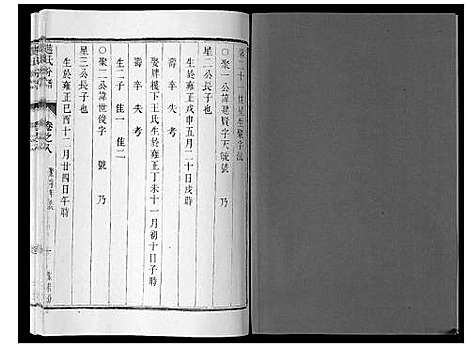 星生聚字派
○聚一公諱世賢字天號 乃
星二公長子也
生於雍正戊申五月二十日戌時
壽卒失考
娶牌樓下王氏生於雍正丁未十一月初十日子時
壽卒失考
生二子 佳一 佳二
○聚二公諱世俊字 號 乃
星三公長子也
生於雍正己酉十二月廿四日午時
趙氏分譜 卷之八